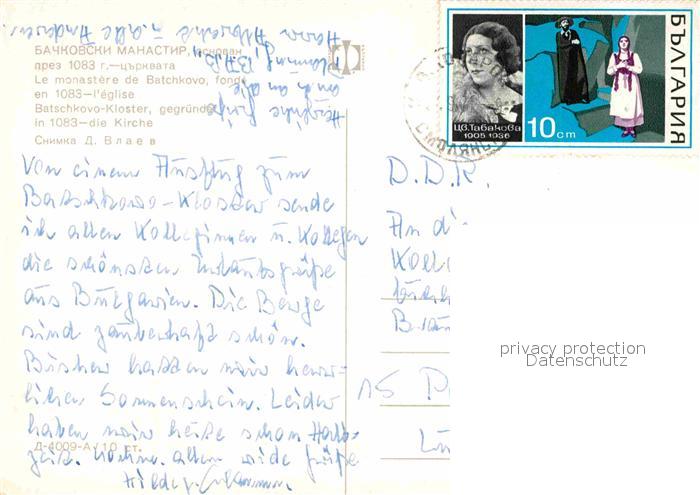 БАЧКОВСКИ МАНАСТИР, основан
през 1083 г.—църквата
Le monastère de Batchkovo, fondé
en 1083—l'église
Batschkovo-Kloster, gegründet
in 1083—die Kirche
Снимка Д. Влаев
БЪЛГАРИЯ
ЦВ. Табакова
1905 1936
10 cm
Von einem Ausflug zum
Batschkowo-Kloster sende
ich allen Kolleginnen u. Kollegen
die schönsten Urlaubsgrüße
aus Bulgarien. Die Berge
sind zauberhaft schön.
Bisher hatten wir herr-
lichen Sonnenschein. Leider
haben wir heute schon Halb-
zeit. Nochm. allen viele Grüße
D.D.R.
An di
Koll
15
Д-4009-А/10 ст.
privacy protection
Datenschutz